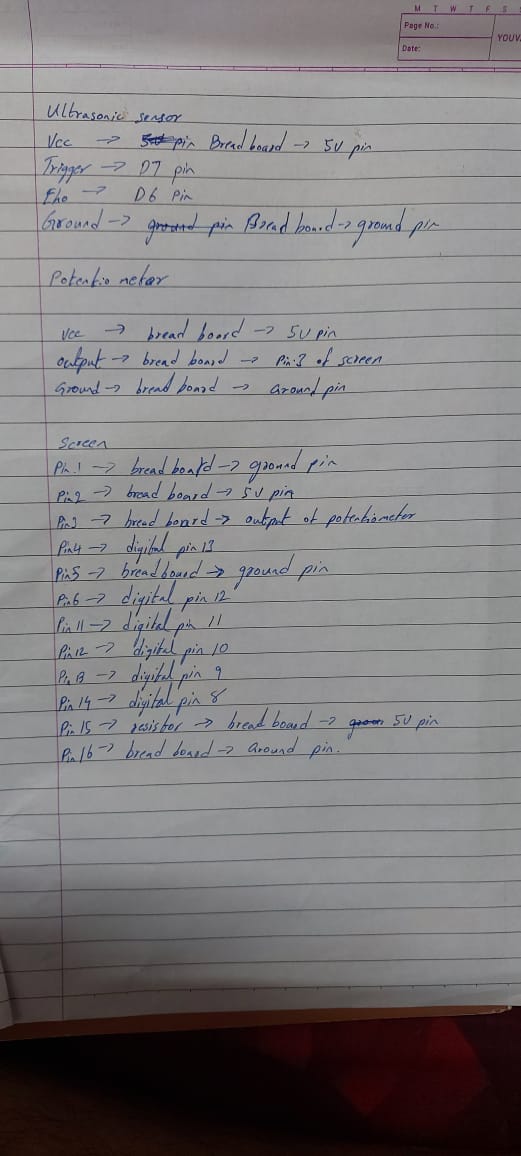 M T W T F S S
Page No.:
YOUV
Date:
Ultrasonic sensor
Vcc -> pin Bread board -> 5V pin
Trigger -> D7 pin
Eho -> D6 Pin
Ground -> ground pin Bread board -> ground pin
Potentio metar
Vcc -> bread board -> 5V pin
output -> bread board -> Pin 3 of screen
Ground -> bread board -> Ground pin
Screen
Pin 1 -> bread board -> ground pin
Pin 2 -> bread board -> 5V pin
Pin 3 -> bread board -> output of potentiometer
Pin 4 -> digital pin 13
Pin 5 -> bread board -> ground pin
Pin 6 -> digital pin 12
Pin 11 -> digital pin 11
Pin 12 -> digital pin 10
Pin 13 -> digital pin 9
Pin 14 -> digital pin 8
Pin 15 -> resistor -> bread board -> 5V pin
Pin 16 -> bread board -> Ground pin.